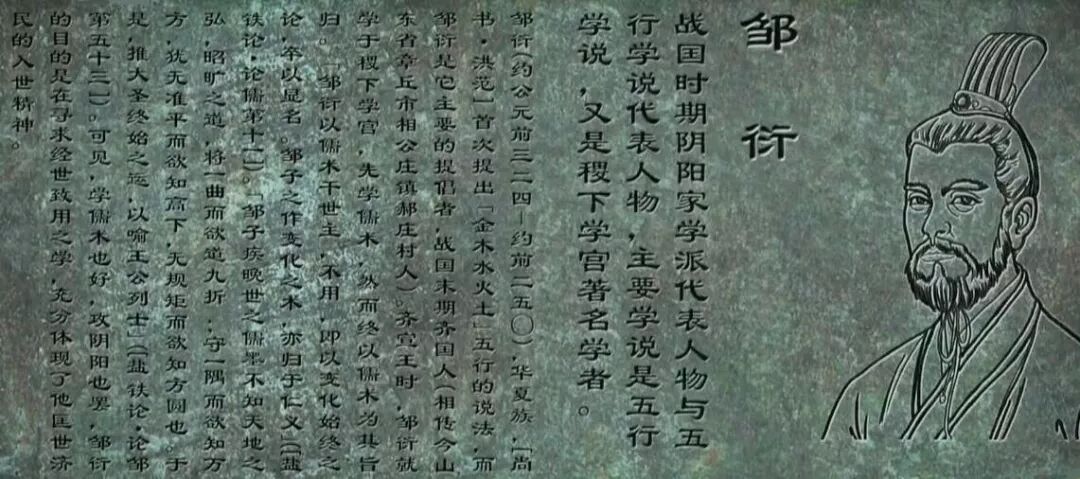 邹衍
战国时期阴阳家学派代表人物与五
行学说代表人物，主要学说是五行
学说，又是稷下学宫著名学者。
邹衍(约公元前三二四-约前二五〇)，华夏族，「尚
书·洪范」首次提出「金木水火土」五行的说法，而
邹衍是它主要的提倡者，战国末期齐国人(相传今山
东省章丘市相公庄镇郝庄村人)。齐宣王时，邹衍就
学于稷下学宫，先学儒术，然而终以儒术为其旨
归。「邹衍以儒术干世主，不用，即以变化始终之
论，卒以显名。邹子之作变化之术，亦归于仁义」(盐
铁论，论儒第十一)。「邹子疾晚世之儒墨不知天地之
弘，昭旷之道，将一曲而欲道九折；守一隅而欲知万
方，犹无准平而欲知高下，无规矩而欲知方圆也。于
是，推大圣终始之运，以喻王公列士」(盐铁论·论邹
第五十三)。可见，学儒术也好，攻阴阳也罢，邹衍
的目的是在寻求经世致用之学，充分体现了他匡世济
民的入世精神。